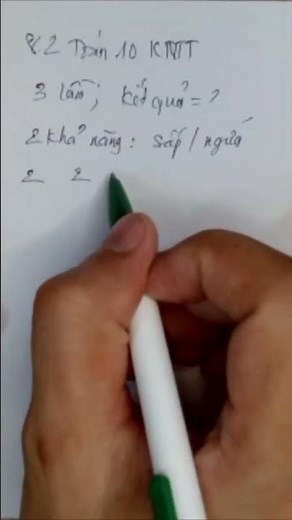 8.2 Toán 10 KNTT
3 lần; kết quả = ?
2 khả năng: sấp / ngửa
2 2